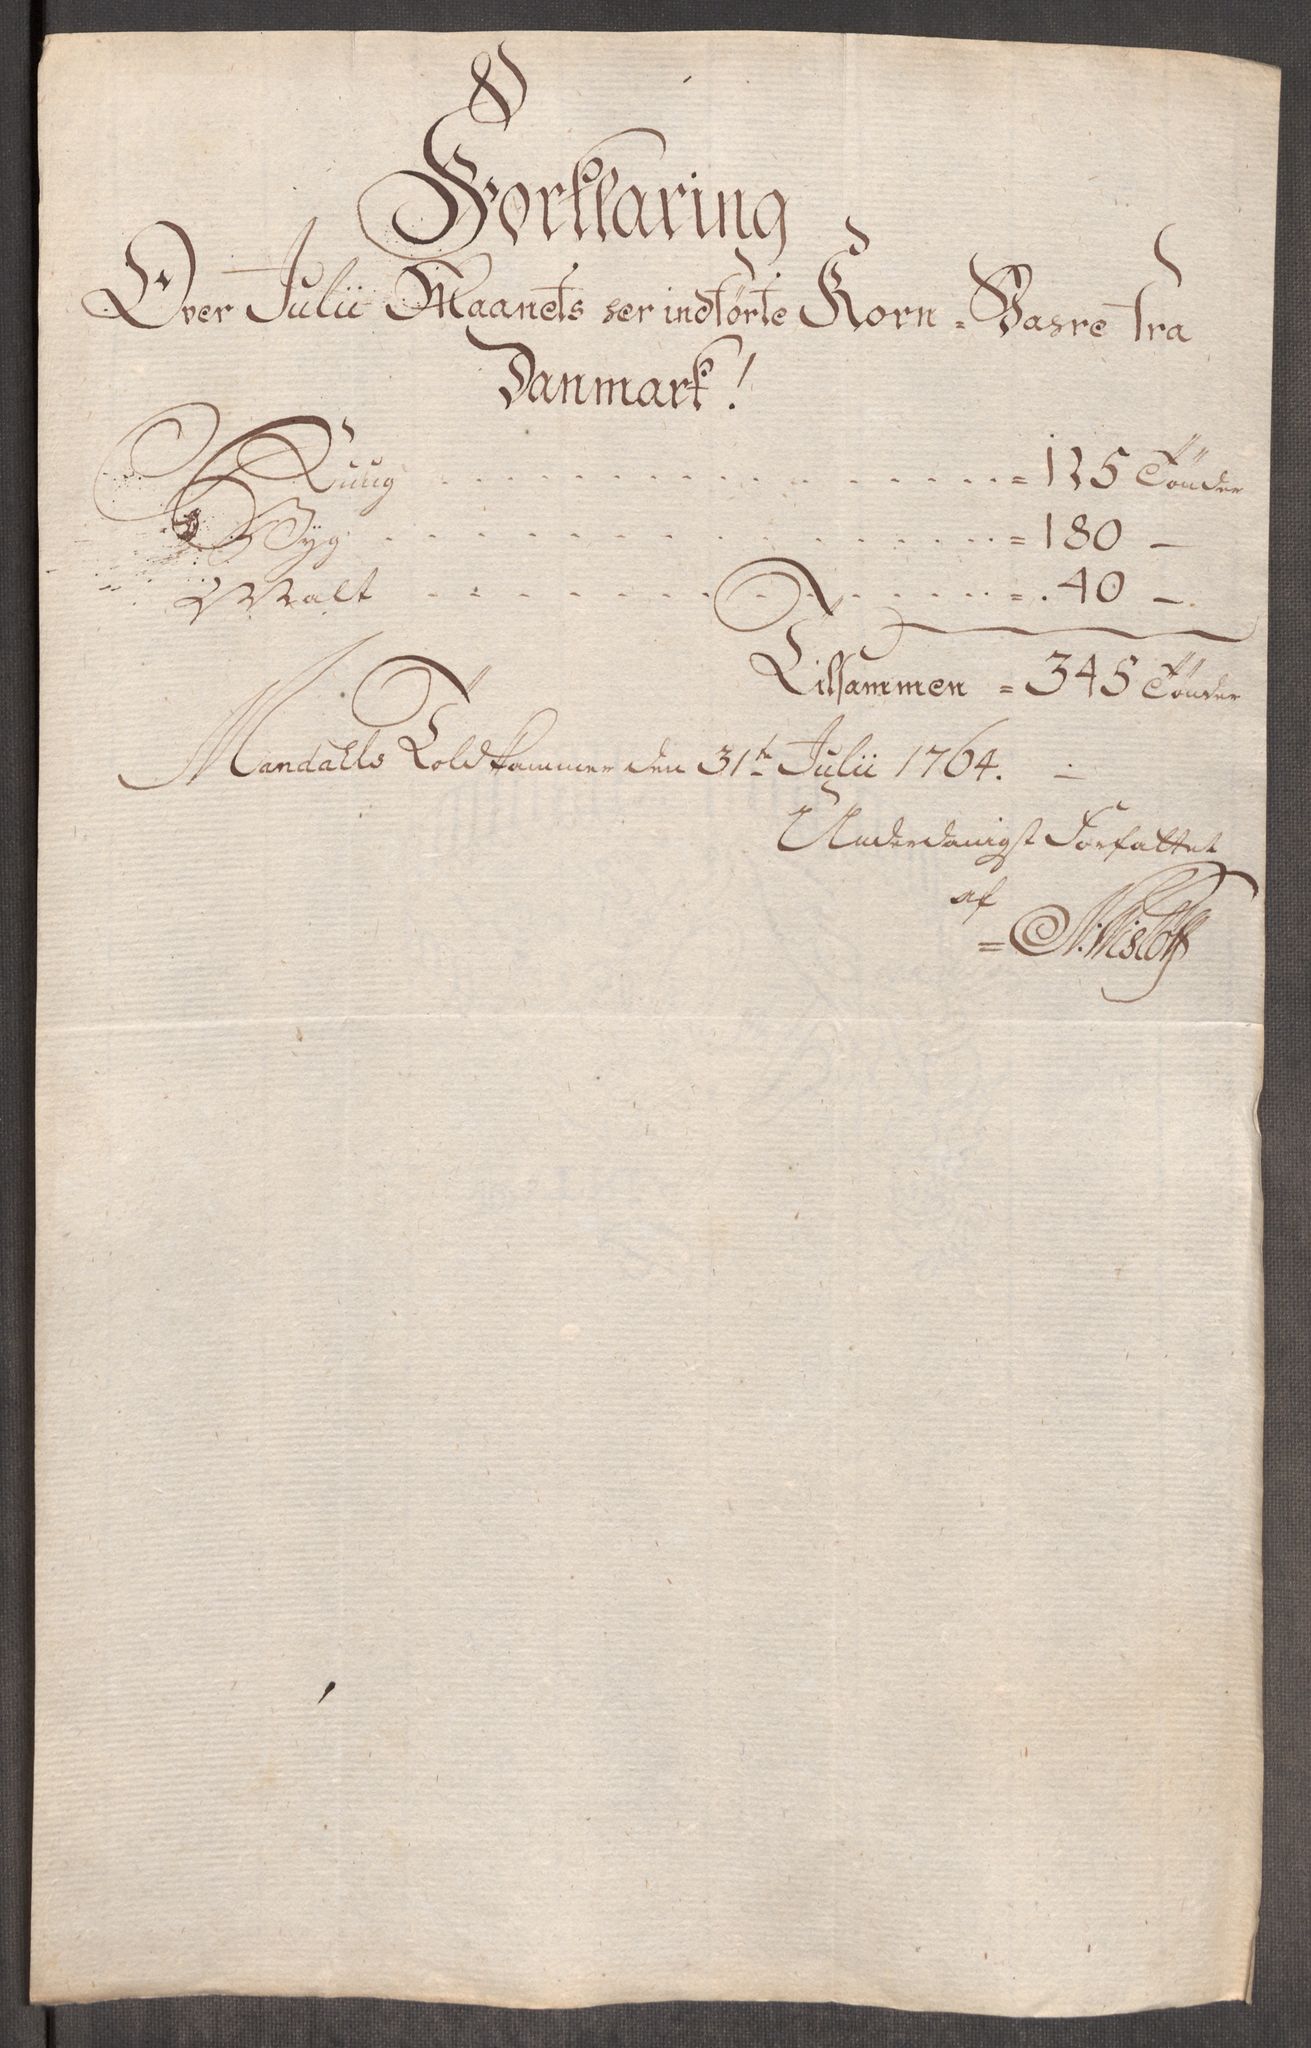 Forklaring
Over Julii Maanets her indførte Korn = Vahre fra
Danmark!
Ruug = 125 Tönder
Byg = 180 —
Malt = . 40 —
Tilsammen = 345 Tönder
Mandahls Toldkammer den 31te Julii 1764.
Underdanigst Forfattet
af